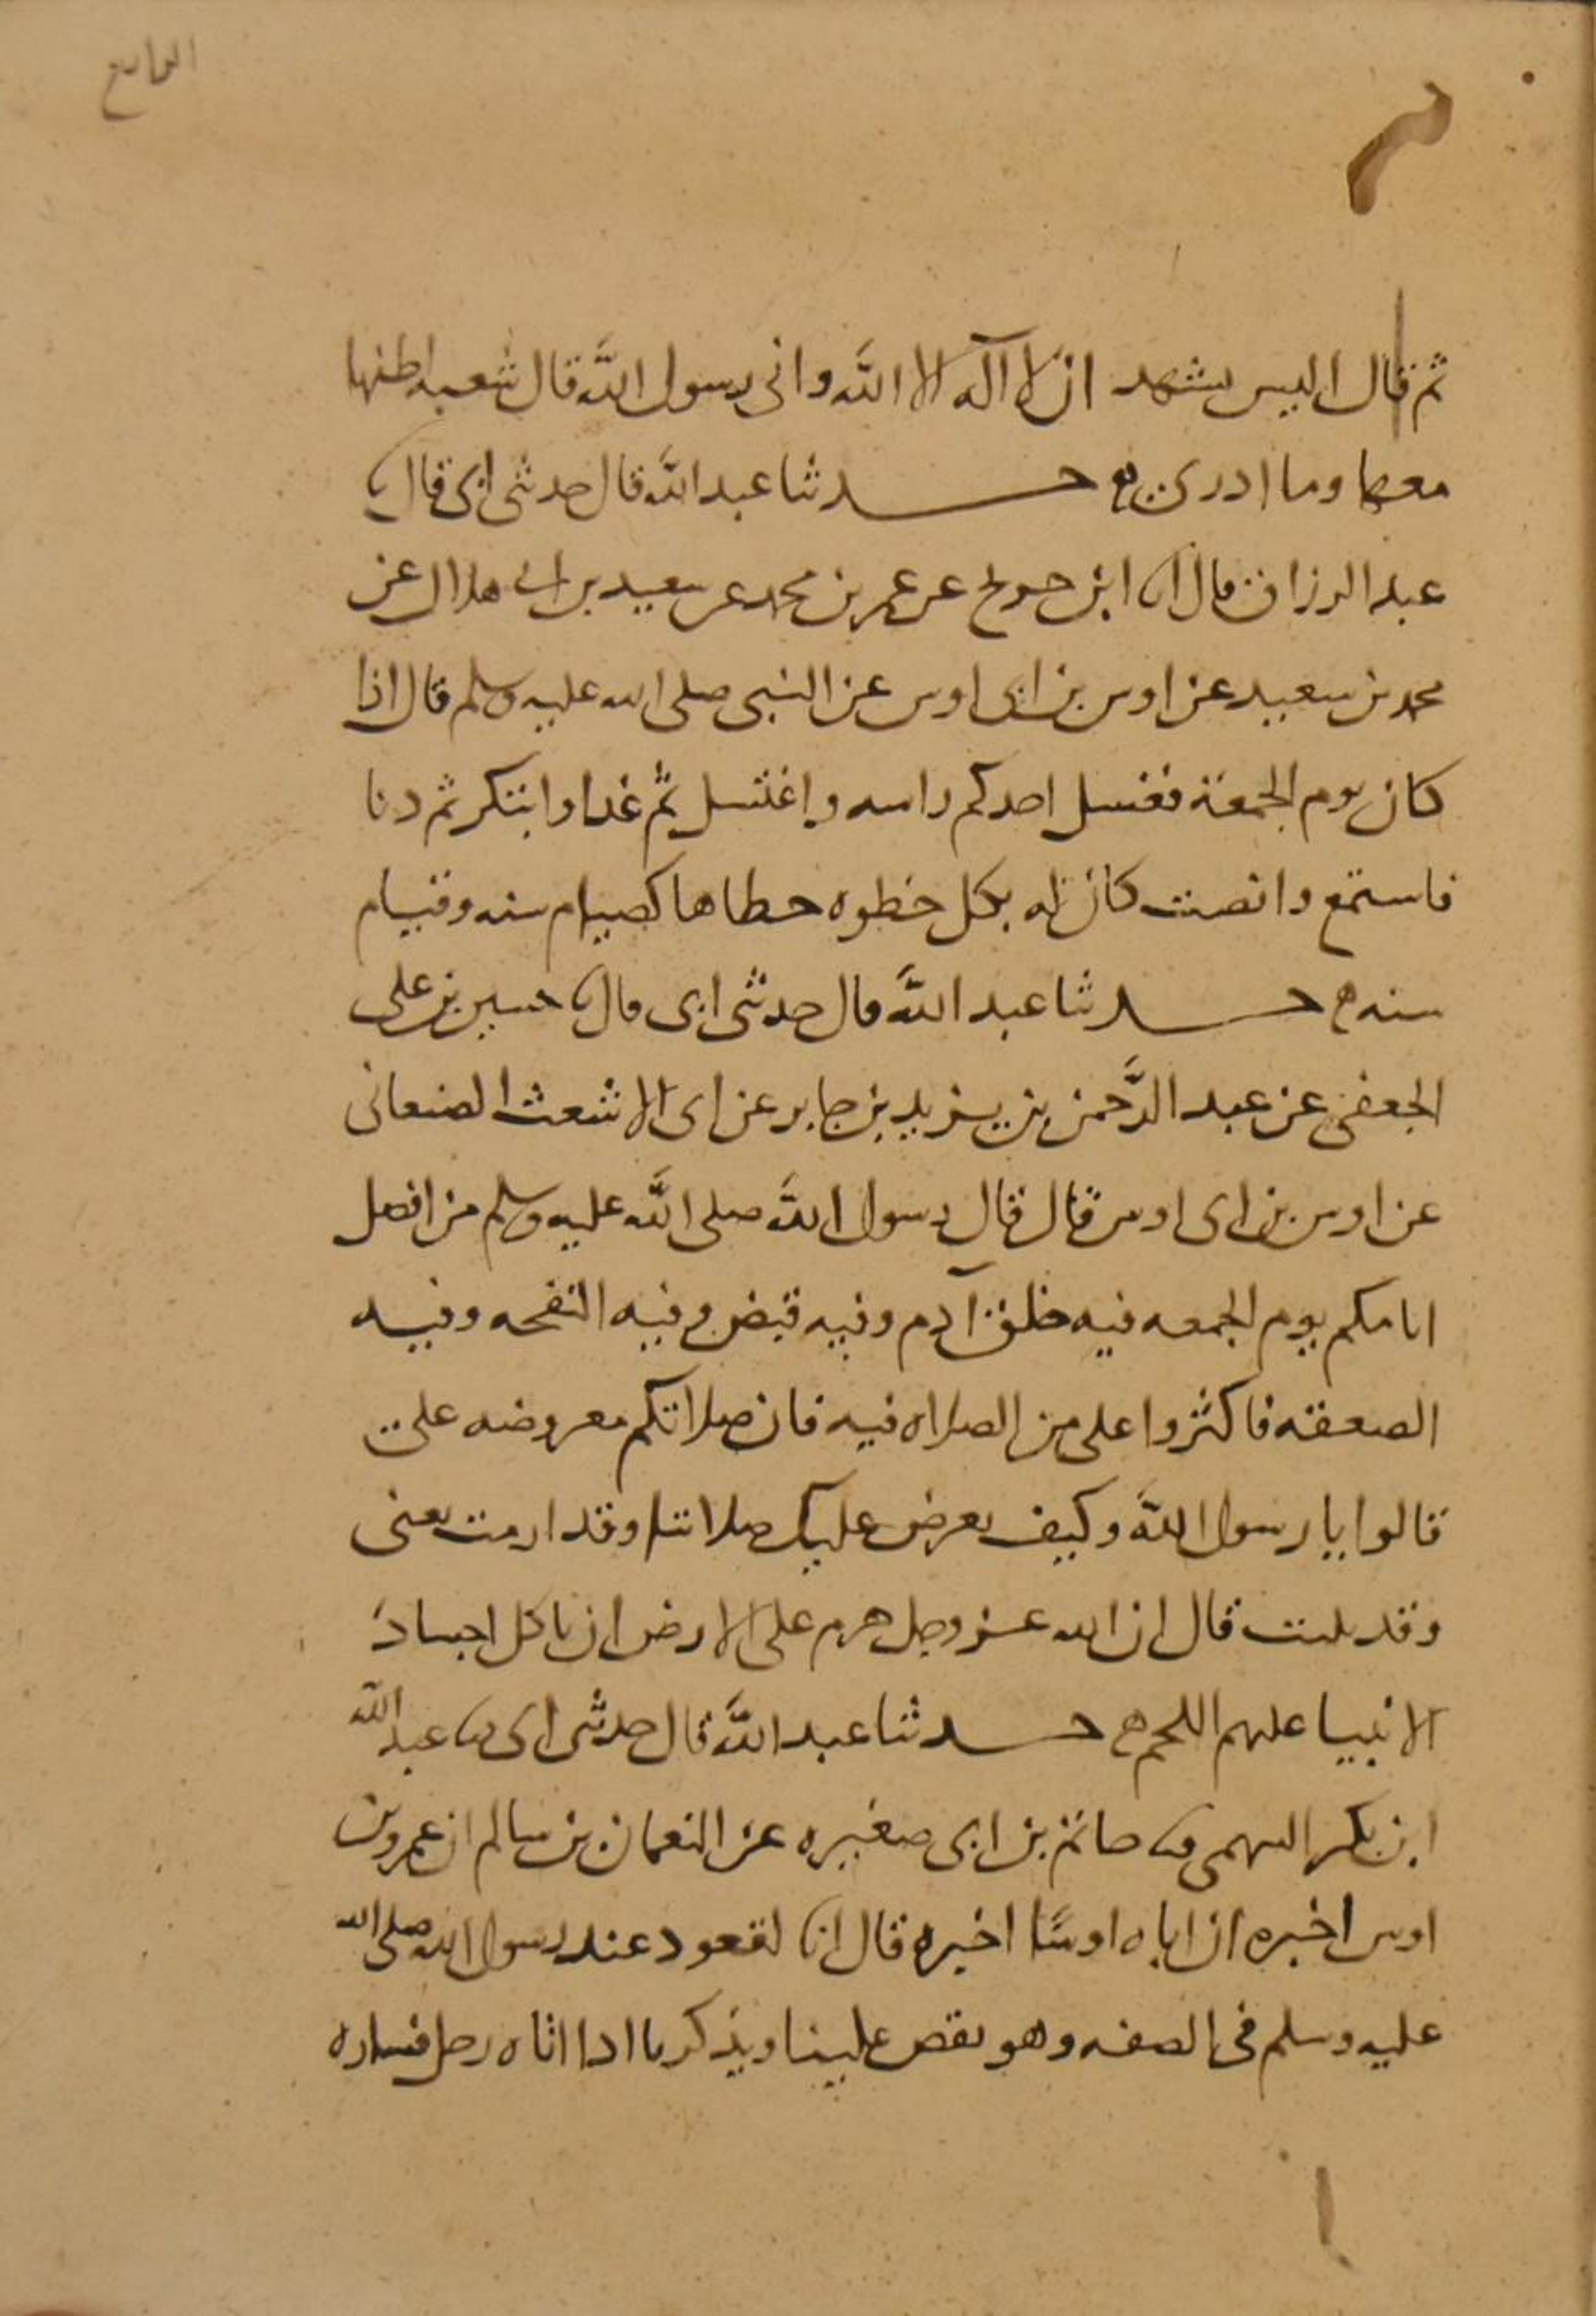 الرابع
ثم قال اليس يشهد ان لا اله الا الله وانى رسول الله قال شعبه اظنها
معها وما ادرى حدثنا عبد الله قال حدثنى ابى قال ثنا
عبد الرزاق قال انا ابن جريج عن عمر بن محمد عن سعيد بن ابى هلال عن
محمد بن سعيد عن اوس بن ابى اوس عن النبى صلى الله عليه وسلم قال اذا
كان يوم الجمعة فغسل احدكم راسه واغتسل ثم غدا وابتكر ثم دنا
فاستمع وانصت كان له بكل خطوه خطاها كصيام سنه وقيام
سنه حدثنا عبد الله قال حدثنى ابى قال ثنا حسين بن على
الجعفى عن عبد الرحمن بن يزيد بن جابر عن ابى الاشعث الصنعانى
عن اوس بن ابى اوس قال قال رسول الله صلى الله عليه وسلم من افضل
ايامكم يوم الجمعه فيه خلق آدم وفيه قبض وفيه النفخه وفيه
الصعقه فاكثروا على من الصلاه فيه فان صلاتكم معروضه على
قالوا يا رسول الله وكيف تعرض عليك صلاتنا وقد ارمت يعنى
وقد بليت قال ان الله عز وجل حرم على الارض ان تاكل اجساد
الانبيا عليهم اللحم حدثنا عبد الله قال حدثنى ابى ثنا عبد الله
ابن بكر السهمى ثنا حاتم بن ابى صغيره عن النعمان بن سالم ان عمرو بن
اوس اخبره ان اباه اوسًا اخبره قال انا لقعود عند رسول الله صلى الله
عليه وسلم فى الصفه وهو يقص علينا ويذكرنا اذا اتاه رجل فساره